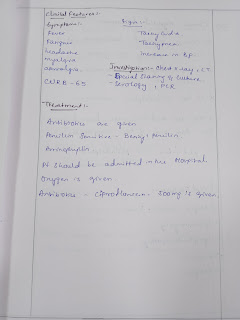 Clinical Features:-
Symptoms:- Signs:-
Fever - Tachycardia
Fatigue - Tachypnea
headache - Increase in BP
myalgia
Investigation:- Chest x-ray, CT
- Special Staining & Culture
CURB-65 - Serology, PCR
Treatment:-
Antibiotics are given
Penicillin Sensitive - Benzyl Penicillin
Pt should be admitted in the Hospital
Oxygen is given
Antibiotics - Ciprofloxacin - 500mg is given